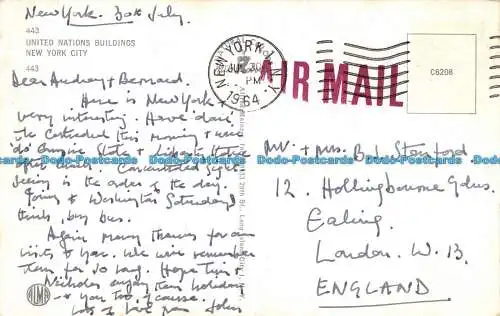 New York. 30th July.
443
UNITED NATIONS BUILDINGS
NEW YORK CITY
443
Dear Audrey + Bernard.
Here is New York +
very interesting. Have done
the Cathedral this morning + will
do Empire State + Liberty Statue
after lunch. Concentrated sight-
seeing is the order of the day.
Going to Washington Saturday I
think, by bus.
Again many thanks for our
visits to you. We will remember
them for so long. Hope Tim +
Nicholas enjoy their holiday
+ you too, of course.
Lots of love from John
NEW YORK, N.Y.
JUL 30
PM
1964
AIR MAIL
C6208
Mr. + Mrs. B. Stamford
12. Hollingbourne Gdns.
Ealing.
London. W. 13.
ENGLAND.